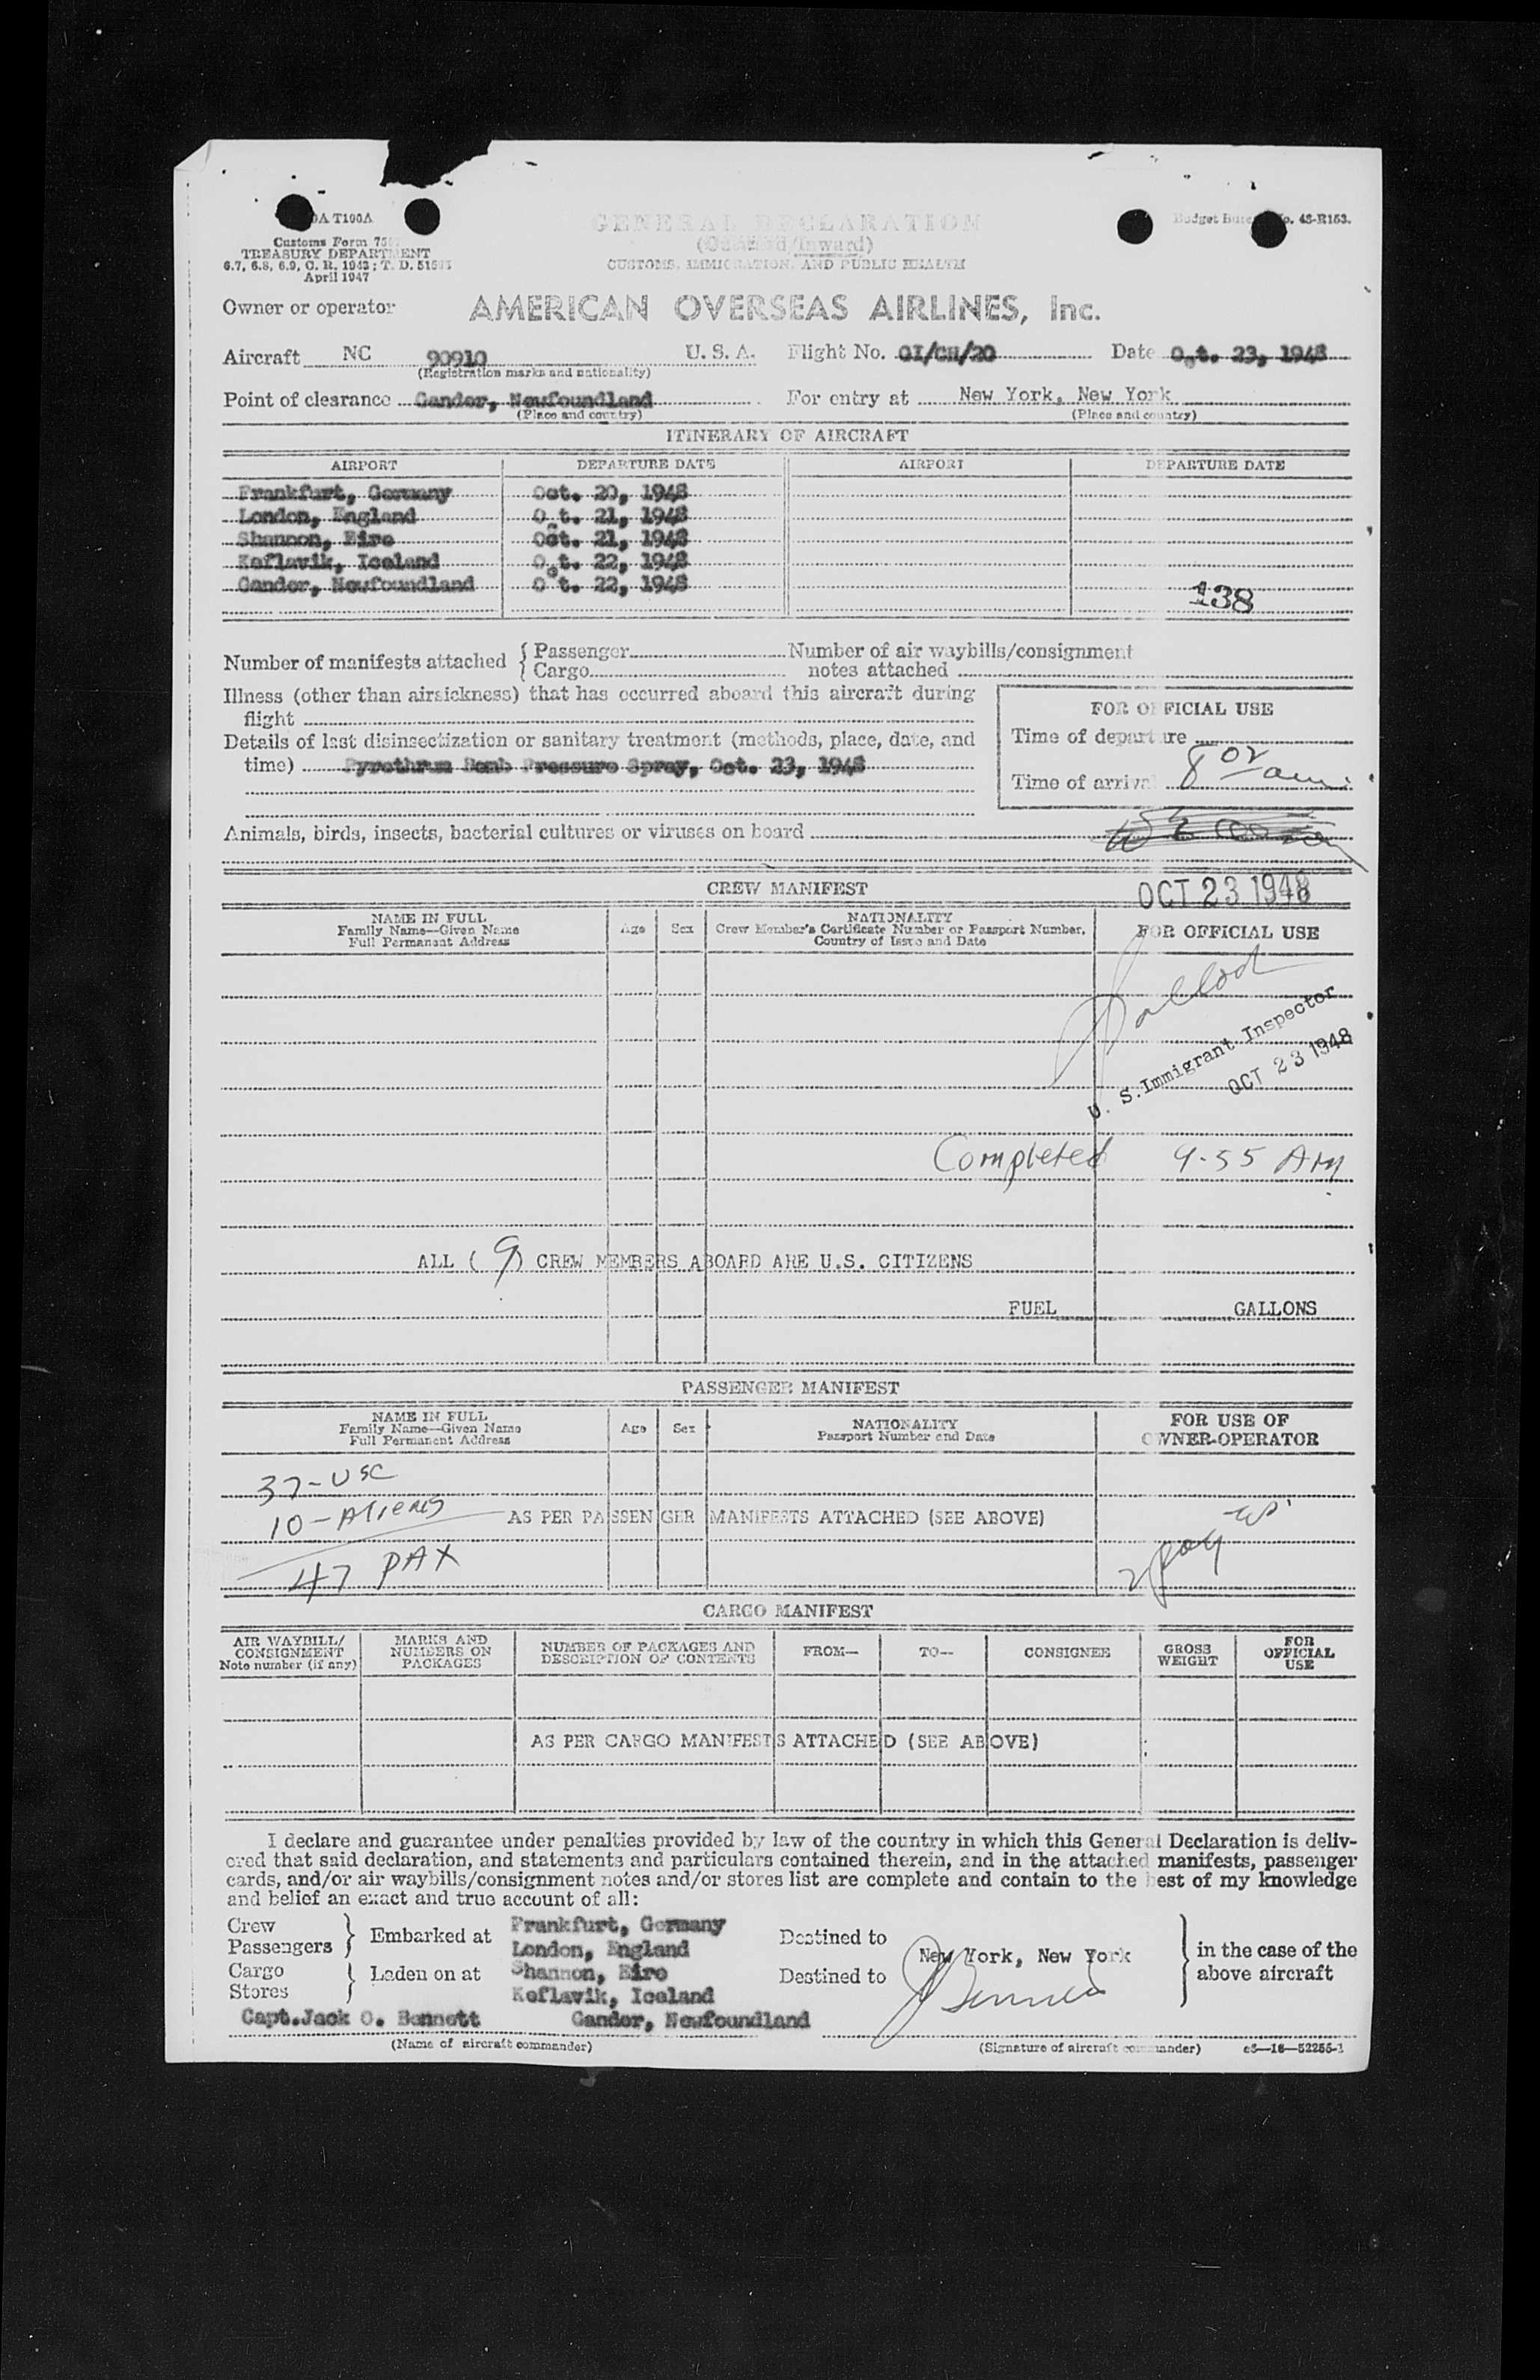 OA T100A
Customs Form 75
TREASURY DEPARTMENT
6.7, 6.8, 6.9, C. R. 1943; T. D. 515
April 1947
GENERAL DECLARATION
(Outward/Inward)
CUSTOMS, IMMIGRATION, AND PUBLIC HEALTH
Budget Bureau No. 43-R153.
Owner or operator AMERICAN OVERSEAS AIRLINES, Inc.
Aircraft NC 90910 U. S. A. Flight No. GI/CH/20 Date Oct. 23, 1948
(Registration marks and nationality)
Point of clearance Gander, Newfoundland For entry at New York, New York
(Place and country) (Place and country)
ITINERARY OF AIRCRAFT
AIRPORT DEPARTURE DATE AIRPORT DEPARTURE DATE
Frankfurt, Germany Oct. 20, 1948
London, England Oct. 21, 1948
Shannon, Eire Oct. 21, 1948
Keflavik, Iceland Oct. 22, 1948
Gander, Newfoundland Oct. 22, 1948
138
Number of manifests attached { Passenger Number of air waybills/consignment
{ Cargo notes attached
Illness (other than airsickness) that has occurred aboard this aircraft during
flight
FOR OFFICIAL USE
Details of last disinsectization or sanitary treatment (methods, place, date, and
time) Pyrethrum Bomb Pressure Spray, Oct. 23, 1948
Time of departure
Time of arrival 8 02 am
Animals, birds, insects, bacterial cultures or viruses on board
CREW MANIFEST
OCT 23 1948
NAME IN FULL
Family Name—Given Name
Full Permanent Address
Age Sex
NATIONALITY
Crew Member's Certificate Number or Passport Number,
Country of Issue and Date
FOR OFFICIAL USE
U. S. Immigrant Inspector
OCT 23 1948
Completed 9-55 AM
ALL (9) CREW MEMBERS ABOARD ARE U.S. CITIZENS
FUEL GALLONS
PASSENGER MANIFEST
NAME IN FULL
Family Name—Given Name
Full Permanent Address
Age Sex
NATIONALITY
Passport Number and Date
FOR USE OF
OWNER-OPERATOR
37-USC
10-Aliens AS PER PASSENGER MANIFESTS ATTACHED (SEE ABOVE)
47 PAX
CARGO MANIFEST
AIR WAYBILL/
CONSIGNMENT
Note number (if any)
MARKS AND
NUMBERS ON
PACKAGES
NUMBER OF PACKAGES AND
DESCRIPTION OF CONTENTS
FROM— TO— CONSIGNEE
GROSS
WEIGHT
FOR
OFFICIAL
USE
AS PER CARGO MANIFESTS ATTACHED (SEE ABOVE)
I declare and guarantee under penalties provided by law of the country in which this General Declaration is deliv-
ered that said declaration, and statements and particulars contained therein, and in the attached manifests, passenger
cards, and/or air waybills/consignment notes and/or stores list are complete and contain to the best of my knowledge
and belief an exact and true account of all:
Crew
Passengers } Embarked at
Cargo
Stores } Laden on at
Frankfurt, Germany
London, England
Shannon, Eire
Keflavik, Iceland
Gander, Newfoundland
Destined to
Destined to
New York, New York
in the case of the
above aircraft
Capt. Jack O. Bennett
JBennett
(Name of aircraft commander) (Signature of aircraft commander) c3—16—52255-1